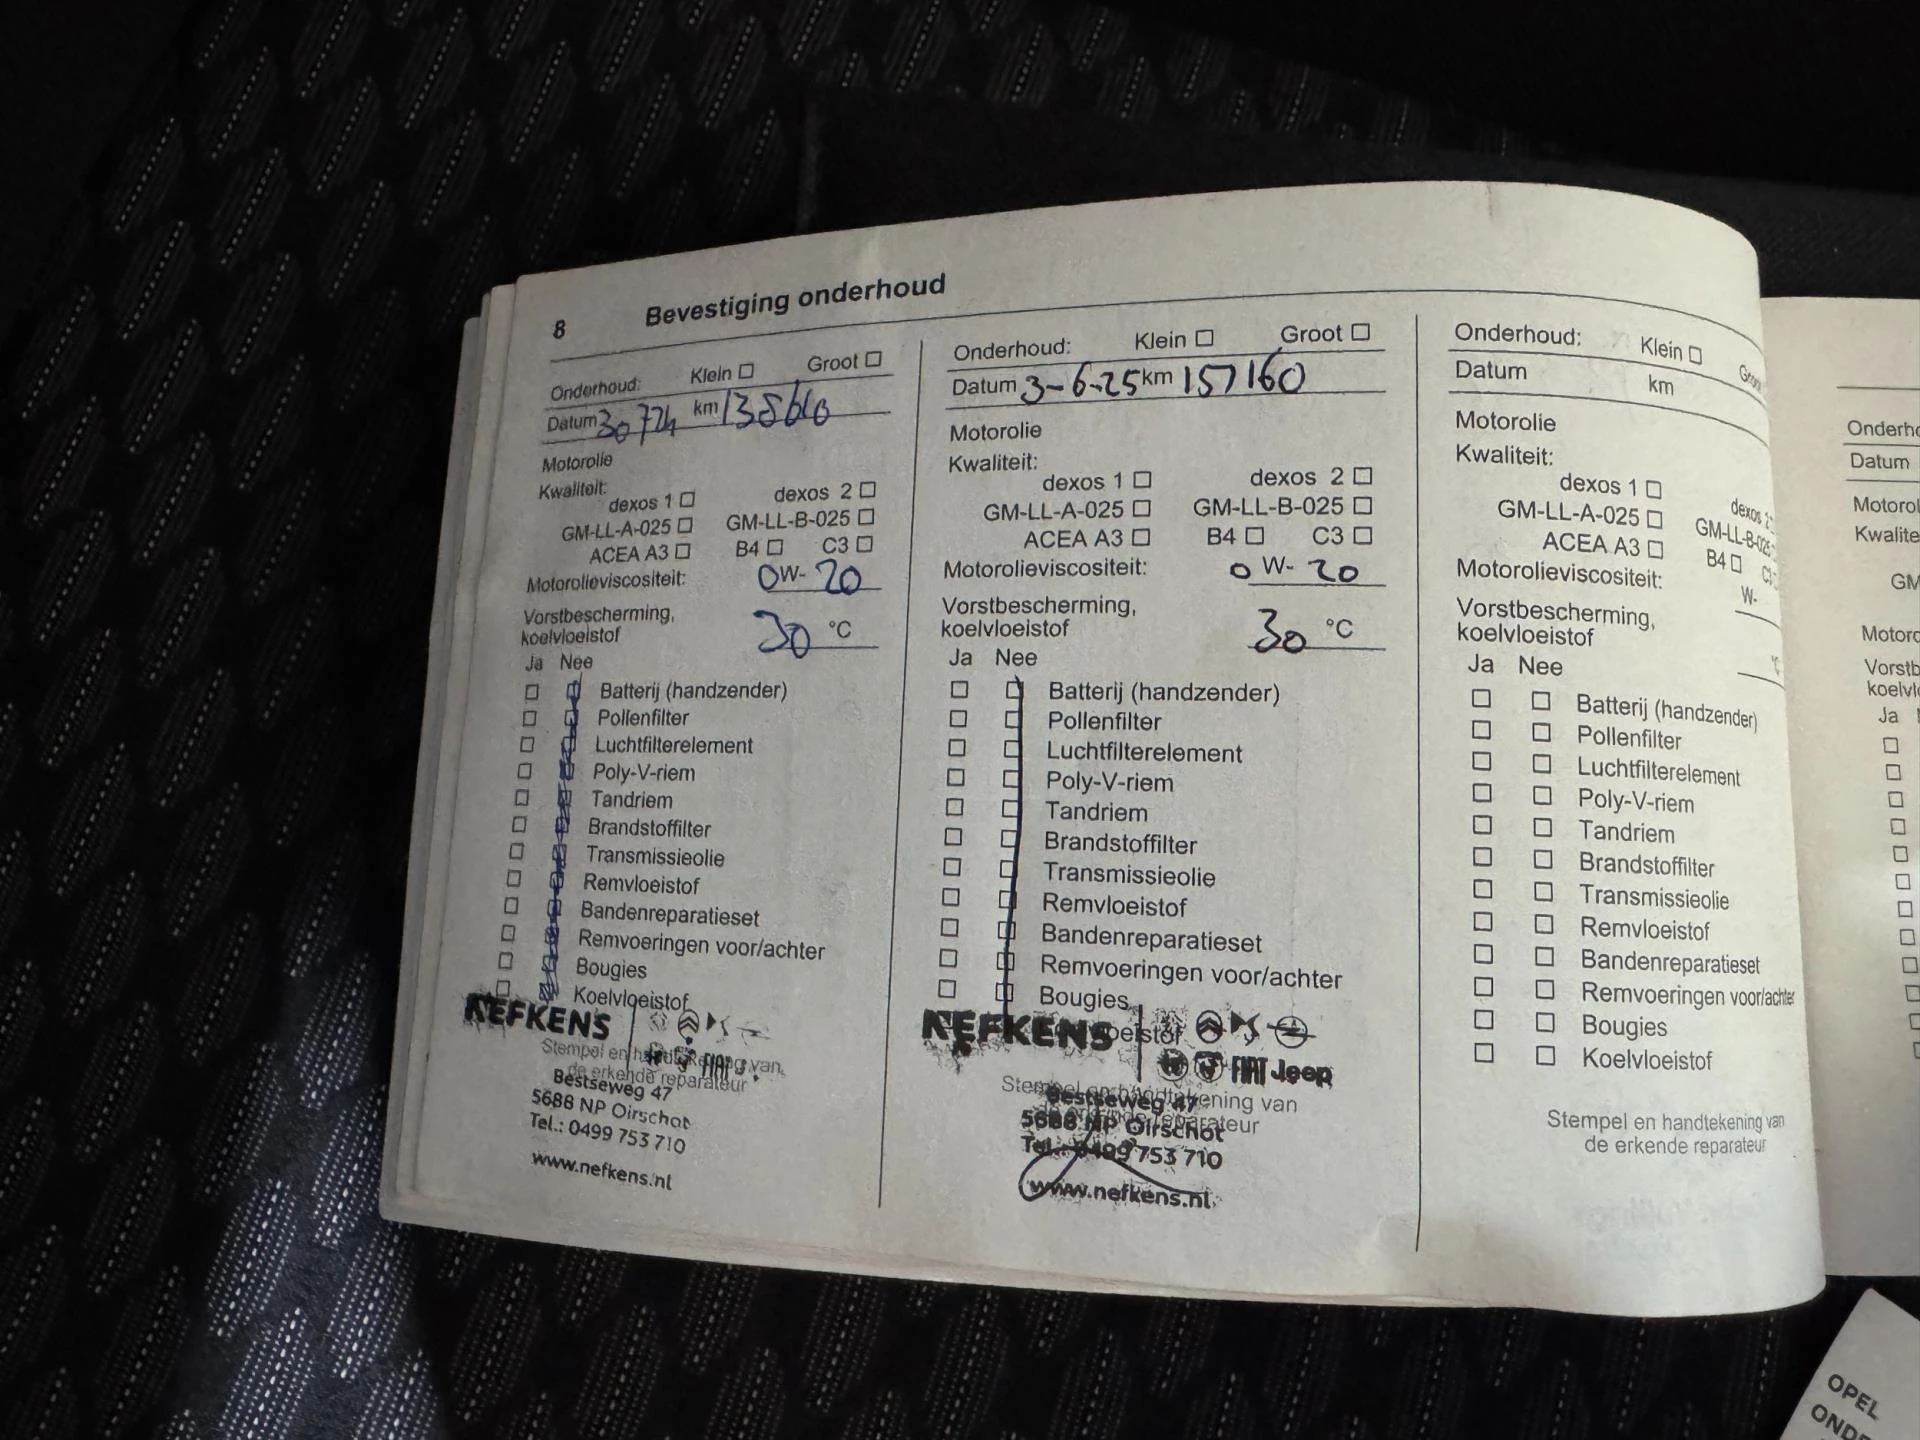 8 Bevestiging onderhoud
Onderhoud: Klein Groot
Datum 30 7 24 km 138660
Motorolie
Kwaliteit:
dexos 1 dexos 2
GM-LL-A-025 GM-LL-B-025
ACEA A3 B4 C3
Motorolieviscositeit: 0 W- 20
Vorstbescherming,
koelvloeistof 30 °C
Ja Nee
Batterij (handzender)
Pollenfilter
Luchtfilterelement
Poly-V-riem
Tandriem
Brandstoffilter
Transmissieolie
Remvloeistof
Bandenreparatieset
Remvoeringen voor/achter
Bougies
Koelvloeistof
NEFKENS
Stempel en handtekening van
de erkende reparateur
FIAT
Bestseweg 47
5688 NP Oirschot
Tel.: 0499 753 710
www.nefkens.nl
Onderhoud: Klein Groot
Datum 3-6-25 km 157160
Motorolie
Kwaliteit:
dexos 1 dexos 2
GM-LL-A-025 GM-LL-B-025
ACEA A3 B4 C3
Motorolieviscositeit: 0 W- 20
Vorstbescherming,
koelvloeistof 30 °C
Ja Nee
Batterij (handzender)
Pollenfilter
Luchtfilterelement
Poly-V-riem
Tandriem
Brandstoffilter
Transmissieolie
Remvloeistof
Bandenreparatieset
Remvoeringen voor/achter
Bougies
NEFKENS
FIAT Jeep
Stempel en handtekening van
de erkende reparateur
Bestseweg 47
5688 NP Oirschot
Tel.: 0499 753 710
www.nefkens.nl
Onderhoud: Klein
Datum km
Motorolie
Kwaliteit:
dexos 1 dexos 2
GM-LL-A-025 GM-LL-B-025
ACEA A3 B4
Motorolieviscositeit: W-
Vorstbescherming,
koelvloeistof
Ja Nee
Batterij (handzender)
Pollenfilter
Luchtfilterelement
Poly-V-riem
Tandriem
Brandstoffilter
Transmissieolie
Remvloeistof
Bandenreparatieset
Remvoeringen voor/achter
Bougies
Koelvloeistof
Stempel en handtekening van
de erkende reparateur
Datum
Ja
OPEL